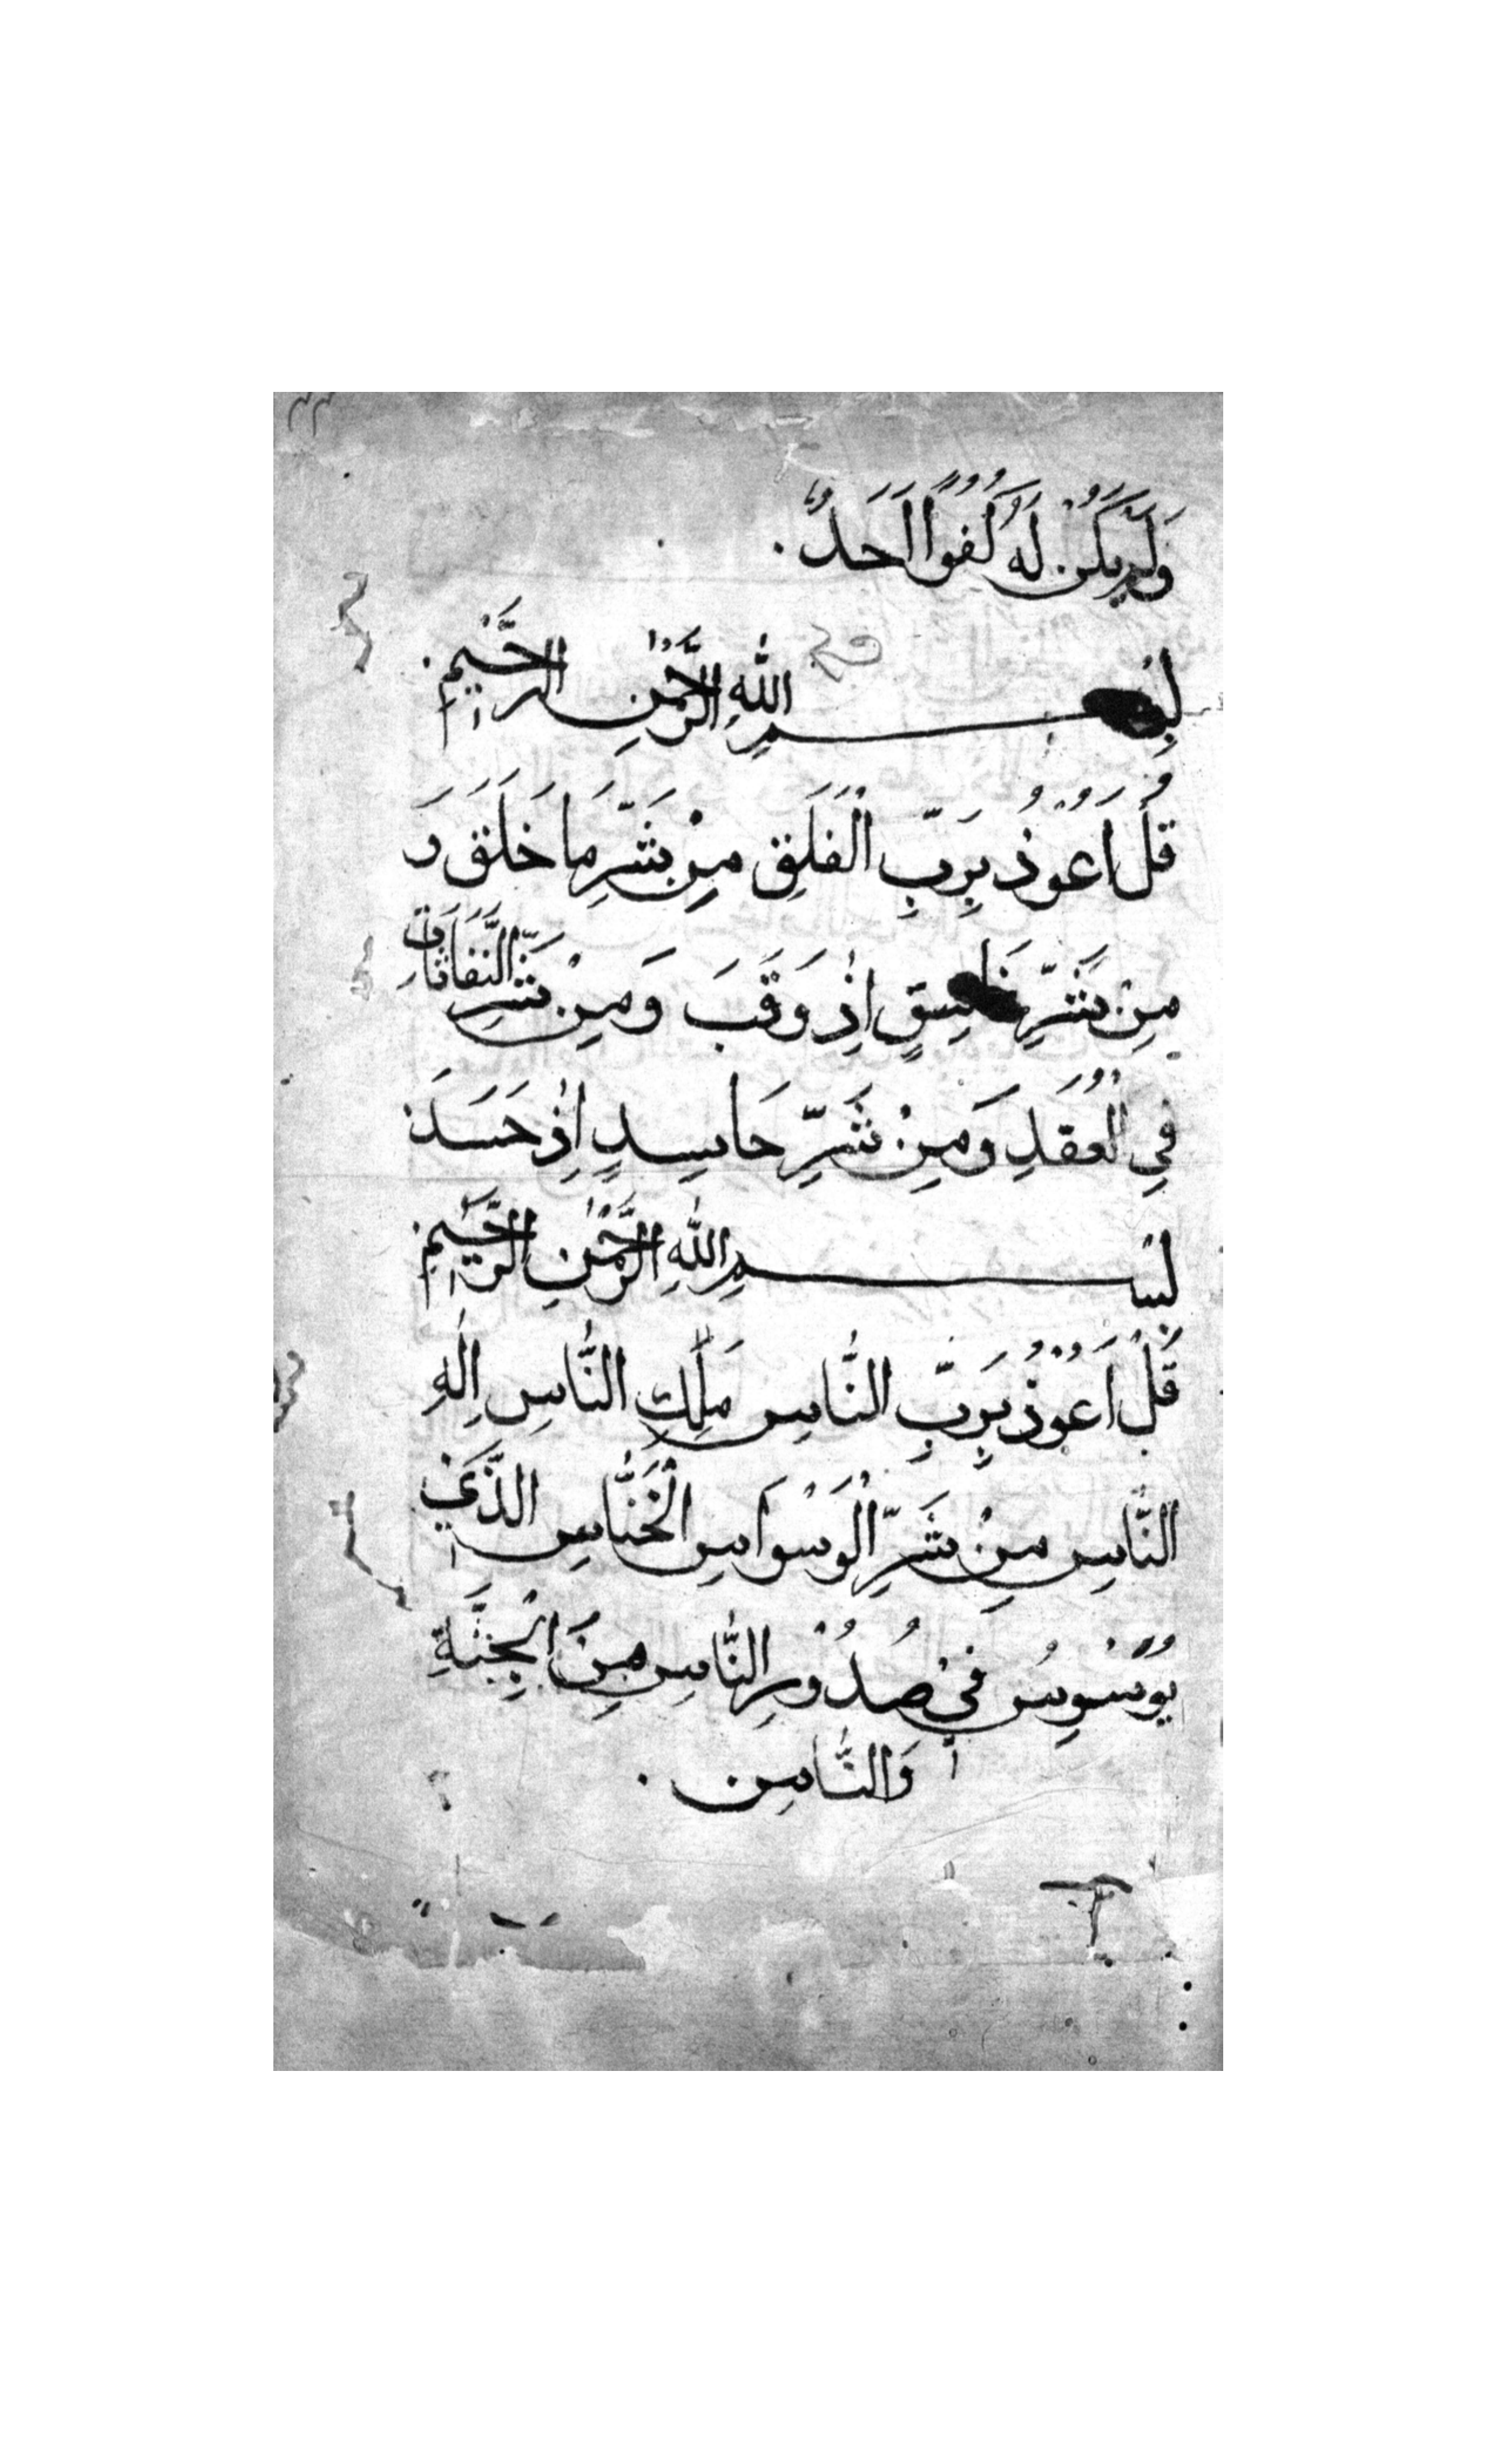 ٣٣
وَلَمْ يَكُنْ لَهُ كُفُوًا اَحَدٌ
بِسْمِ اللّٰهِ الرَّحْمٰنِ الرَّحِيْمِ
قُلْ اَعُوْذُ بِرَبِّ الْفَلَقِ مِنْ شَرِّ مَا خَلَقَ وَ
مِنْ شَرِّ غَاسِقٍ اِذٰ وَقَبَ وَمِنْ شَرِّ النَّفَاثَاتِ
فِي الْعُقَدِ وَمِنْ شَرِّ حَاسِدٍ اِذٰ حَسَدَ
بِسْمِ اللّٰهِ الرَّحْمٰنِ الرَّحِيْمِ
قُلْ اَعُوْذُ بِرَبِّ النَّاسِ مَلِكِ النَّاسِ اِلٰهِ
النَّاسِ مِنْ شَرِّ الْوَسْوَاسِ الْخَنَّاسِ الَّذَيْ
يُوَسْوِسُ فِيْ صُدُوْرِ النَّاسِ مِنَ الْجِنَّةِ
وَالنَّاسِ